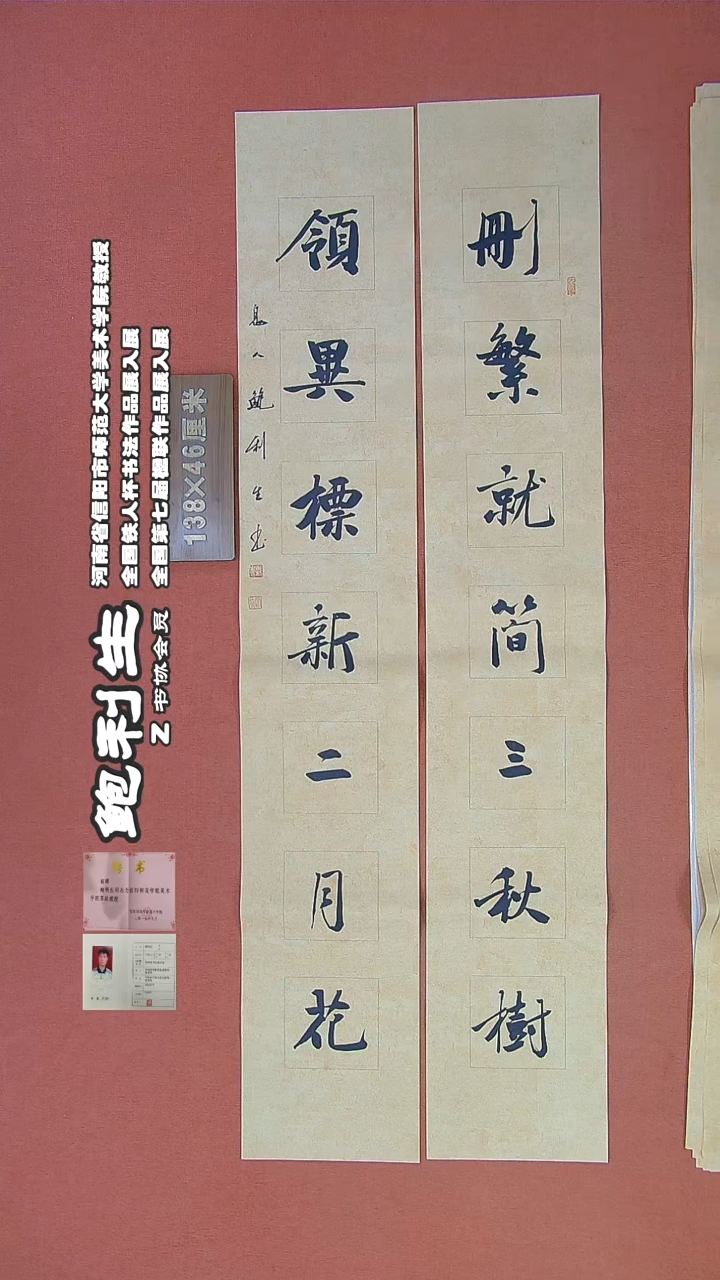 刪繁就簡三秋樹
領異標新二月花
息人鮑利生书
138×46厘米
鲍利生
Z 书协会员
河南省信阳市师范大学美术学院教授
全国铁人杯书法作品展入展
全国第七届楹联作品展入展
聘书